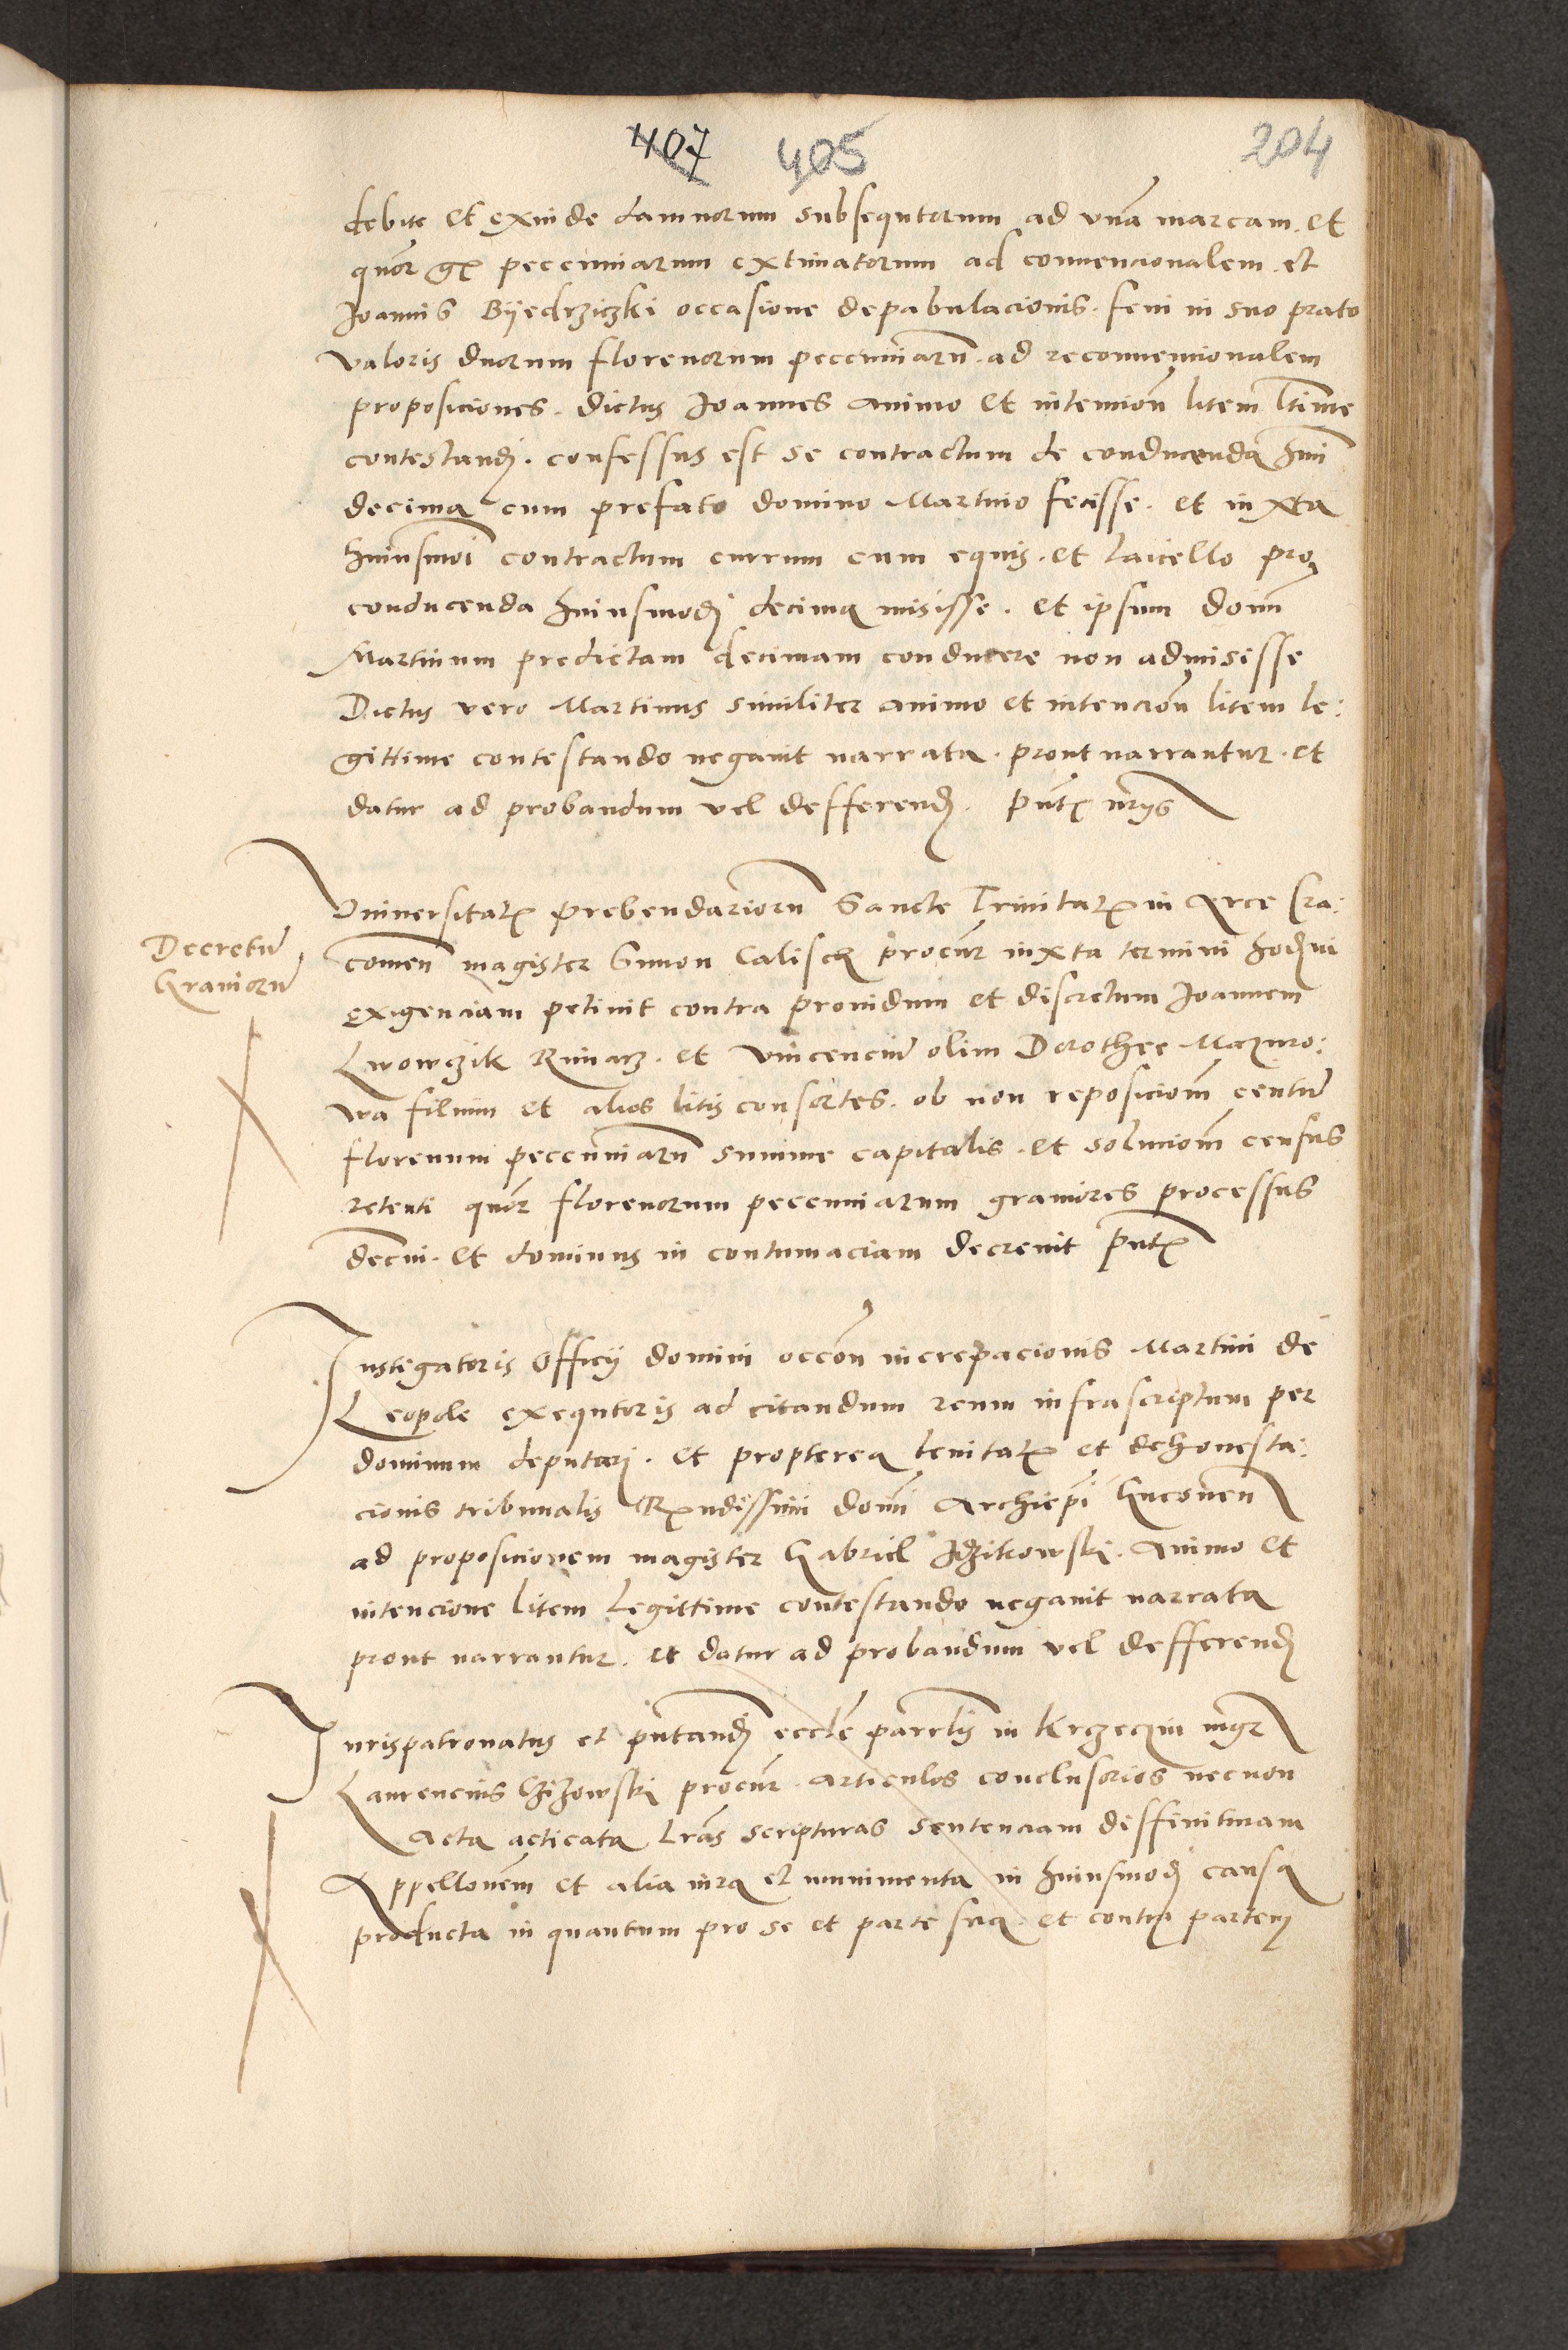 407 405 204
debite et exinde damnorum subsequtorum ad vnā marcam et
quor gr peccuniarum extimatorum ad convencionalem et
Joannis Byedrziczki occasione depabulacionis feni in suo prato
valoris duorum florenorum peccuniarū ad reconvencionalem
proposiciones. dictus Joannes animo et intencioñ litem ltime
contestandj. confessus est se contractum de conducenda hmoi
decima cum prefato domino Martino fecisse. et iuxta
huiusmoi contractum currum cum equis et laicello pro
conducenda huiusmodj decima misisse. et ipsum domī
Martinum predictam decimam conducere non admisisse
Dictus vero Martinus similiter animo et intencioñ litem le:
gittime contestando negavit narrata prout narrantur et
datur ad probandum vel defferendj. pñtꝭ
Vniversitatꝭ prebendariorū Sancte Trinitatꝭ in Arce Cra:
Decretū
Graviorū
covieñ magister Simon Calisch procūr iuxta termini hodierni
exigenciam petivit contra providum et discretum Joannem
Lwowczik Rimarz et Vincenciū olim Dorothee Mazuro:
wa filium et alios litis consortes. ob non reposiciom̄ centū
florenum peccuniarū summe capitalis et soluciom̄ census
retenti quor florenorum peccuniarum graviores processus
decni et dominus in contumaciam decrevit pñtꝭ
Instigatoris officij domini occoñ increpacionis Martini de
Leopole exequtoris ad citandum reum infrascriptum per
dominum deputatj. et propterea levitatꝭ et dehonesta:
cionis tribunalis Rꝭndissimi domī Archiepī Gneoneñ
ad proposicionem magister Gabriel Idzikowski. animo et
intencione litem legittime contestando negavit narrata
prout narrantur. et datur ad probandum vel defferendj
Jurispatronatus et pñtandj eccleē parrlis in Krzeczin mgr
Laurencius Chizowski procūr articulos conclusorios necnon
acta acticata lrās scripturas sentenciam diffinitivam
Appellonem et alia iura et munimenta in huiusmodj causa
producta in quantum pro se et parte sua et contra partem